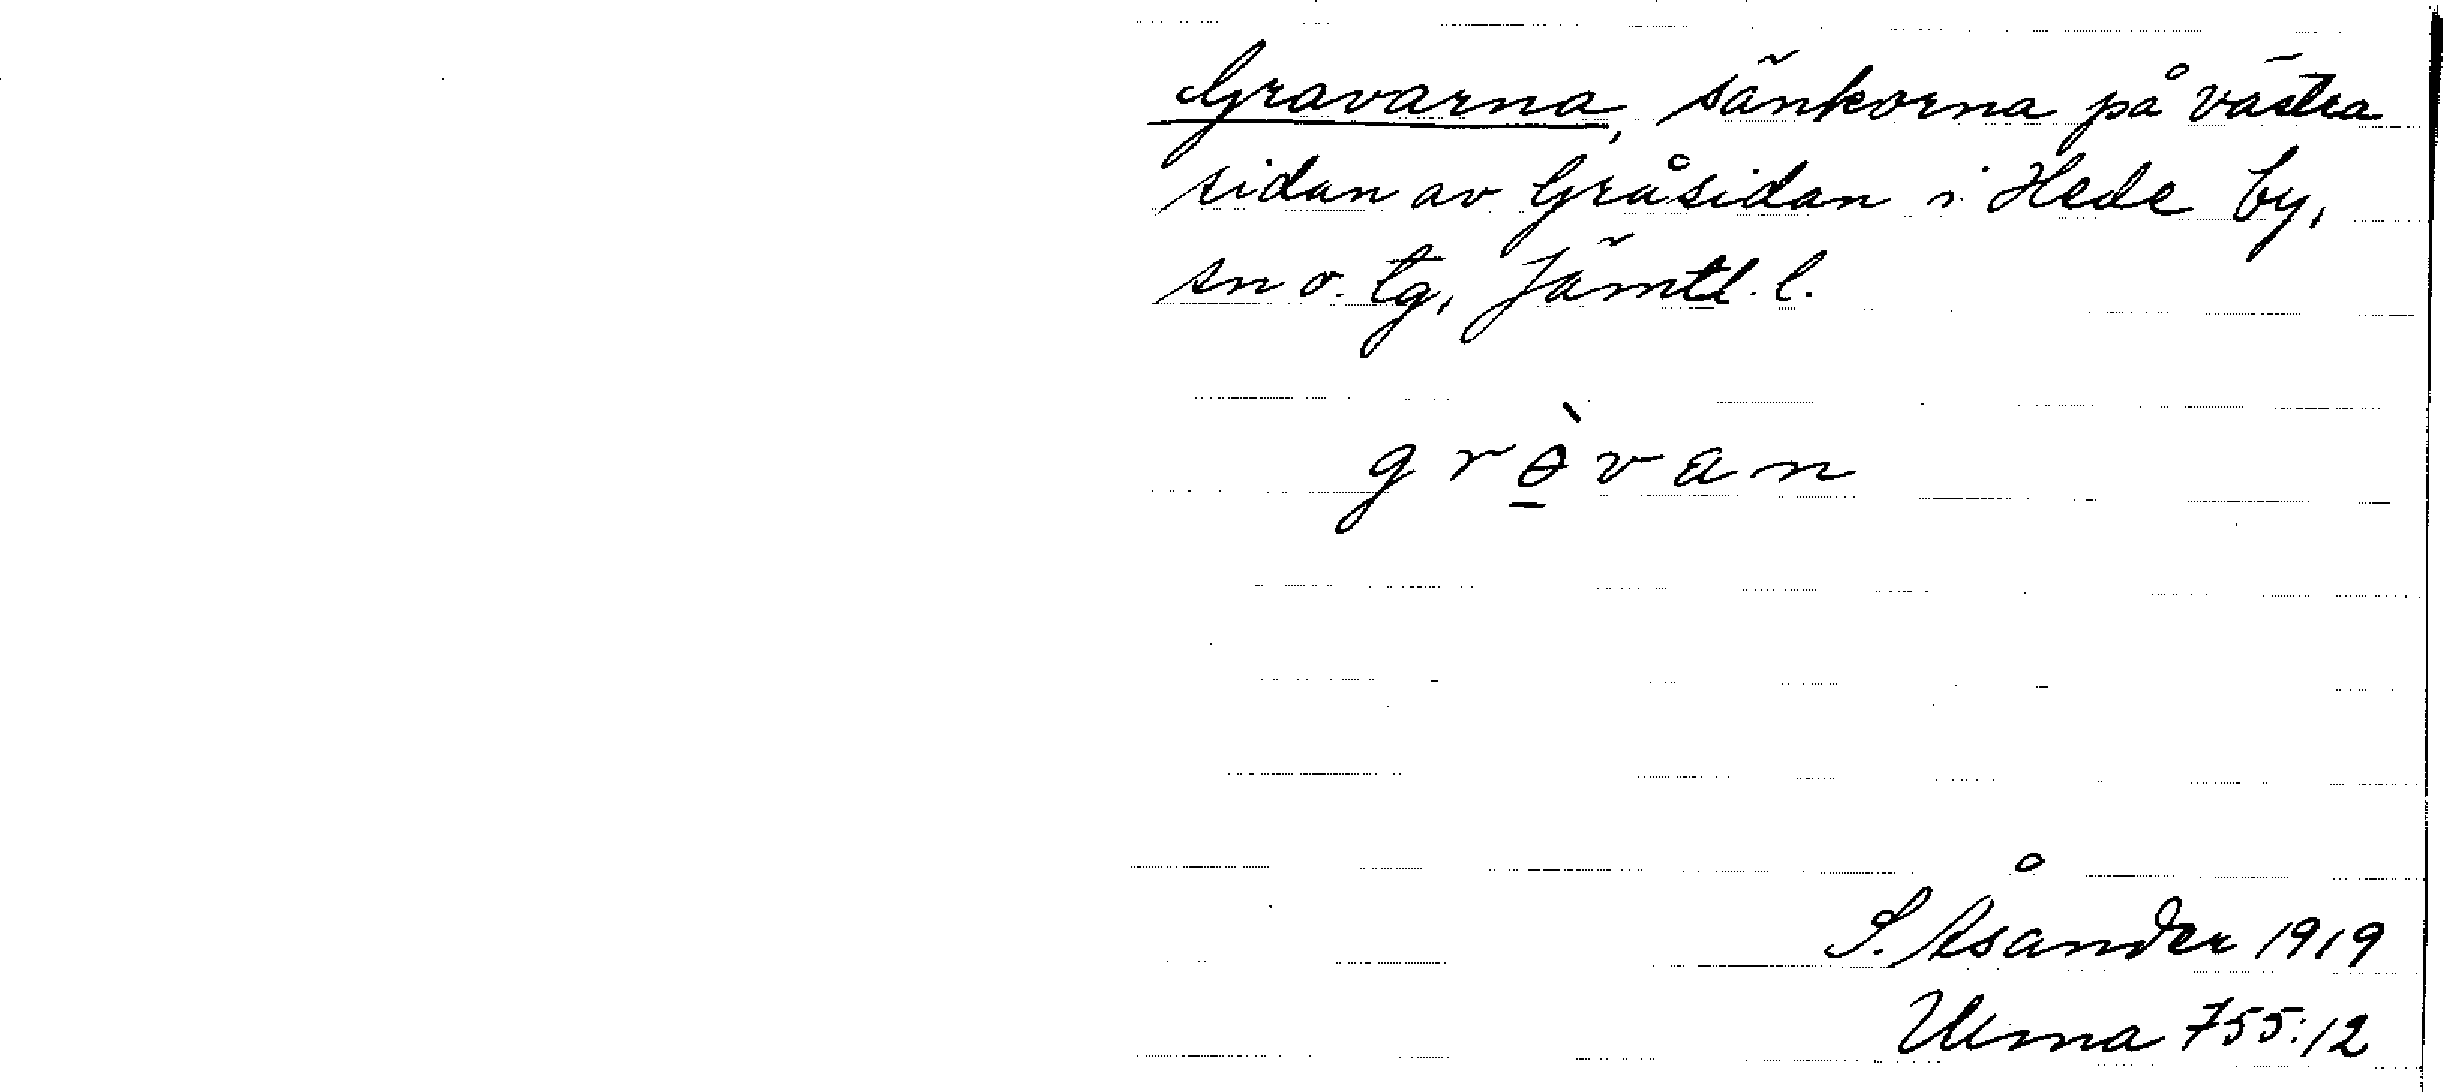 Gravarna, sänkorna på västra
sidan av Gråsidan i Hede by,
sn o. tg, Jämtl. l.
grèvan
S. Åsander 1919
Ulma 755:12